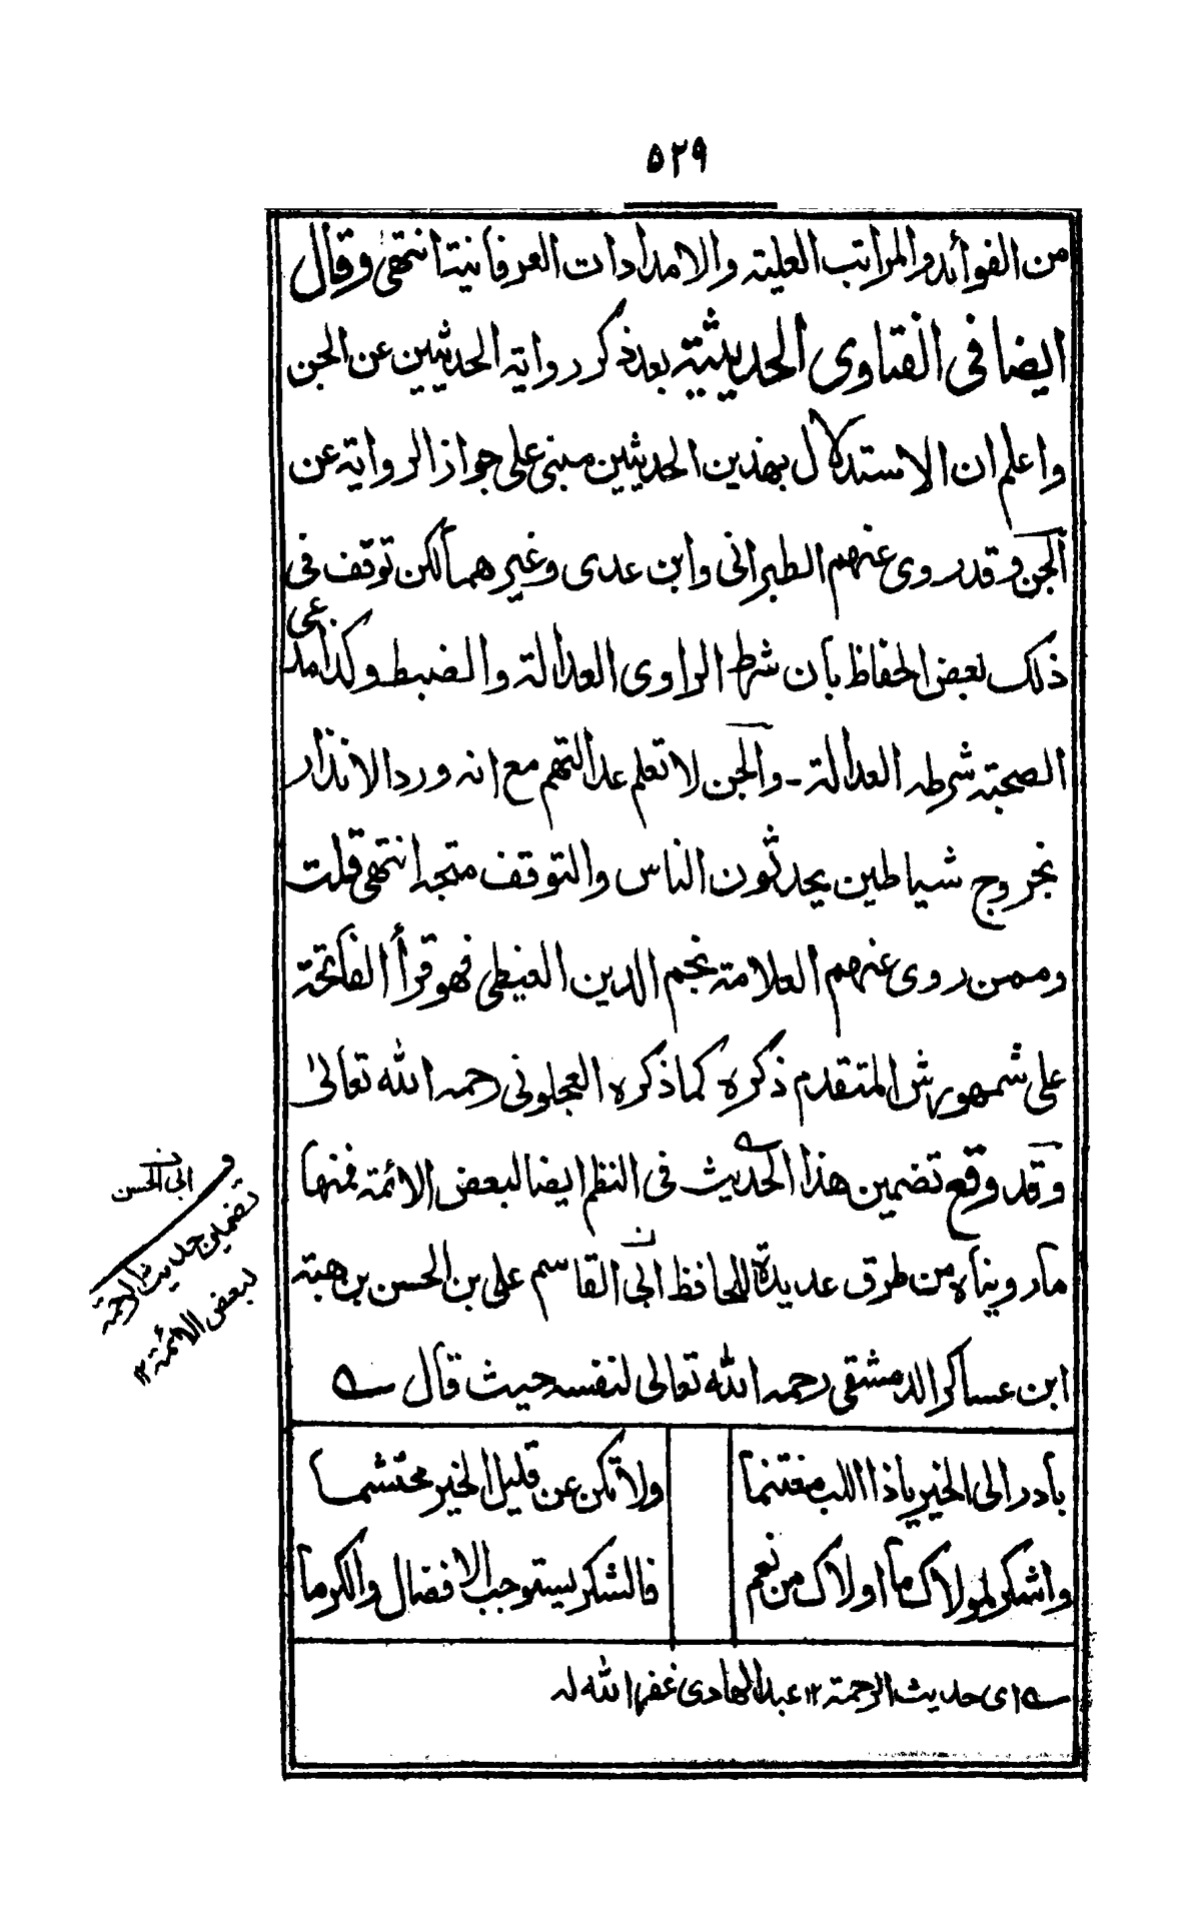 ٥٢٩
من الفوائد والمراتب العلية والامدادات العرفانية انتهى وقال
ايضا فى الفتاوى الحديثية بعد ذكر رواية الحديثين عن الجن
واعلم ان الاستدلال بهذين الحديثين مبنى على جواز الرواية عن
الجن وقد روى عنهم الطبرانى وابن عدى وغيرهما لكن توقف فى
ذلك بعض الحفاظ بان شرط الراوى العدالة والضبط وكذا مدعى
الصحبة شرطه العدالة - والجن لا تعلم عدالتهم مع انه ورد الانذار
بخروج شياطين يحدثون الناس والتوقف متجه انتهى قلت
وممن روى عنهم العلامة نجم الدين الغيطى فهو قرأ الفاتحة
على شمهورش المتقدم ذكره كما ذكره العجلونى رحمه الله تعالى
وقد وقع تضمين هذا الحديث فى النظم ايضا لبعض الائمة فمنها
ما رويناه من طرق عديدة للحافظ ابى القاسم على بن الحسن بن هبة
ابن عساكر الدمشقى رحمه الله تعالى لنفسه حيث قال
بادر الى الخير ياذا اللب مغتنما ولا تكن عن قليل الخير محتشما
واشكر لمولاك ما اولاك من نعم فالشكر يستوجب الافضال والكرما
اى حديث الرحمة ١٢ عبد الهادى غفر الله له
ابى الحسن
تضمين حديث الرحمة
لبعض الائمة ١٢